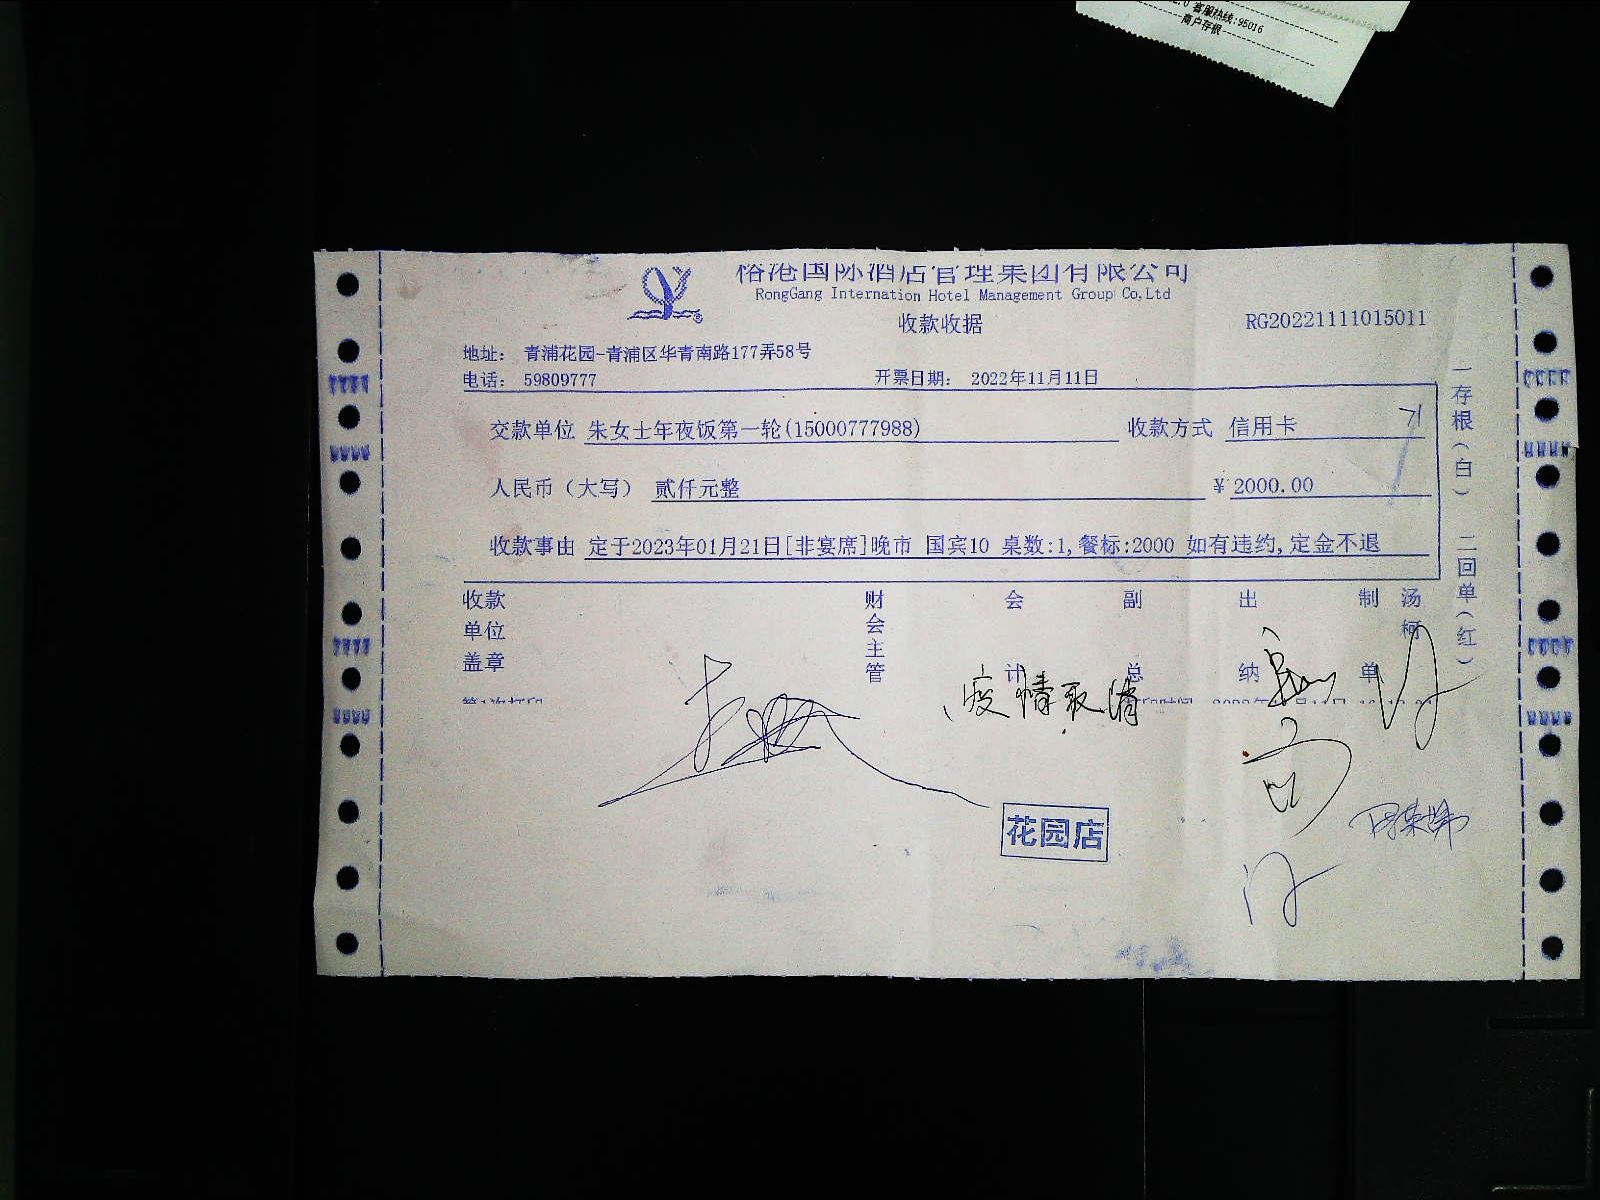 客服热线:95016
商户存根
榕港国际酒店管理集团有限公司
RongGang Internation Hotel Management Group Co,Ltd
收款收据
RG20221111015011
地址： 青浦花园-青浦区华青南路177弄58号
电话： 59809777
开票日期： 2022年11月11日
交款单位 朱女士年夜饭第一轮(15000777988)
收款方式 信用卡
人民币（大写） 贰仟元整
¥ 2000.00
收款事由 定于2023年01月21日[非宴席]晚市 国宾10 桌数:1,餐标:2000 如有违约,定金不退
一存根（白） 二回单（红）
收款单位盖章
财会主管
会计
副总
出纳
制单
汤柯
疫情取消
花园店